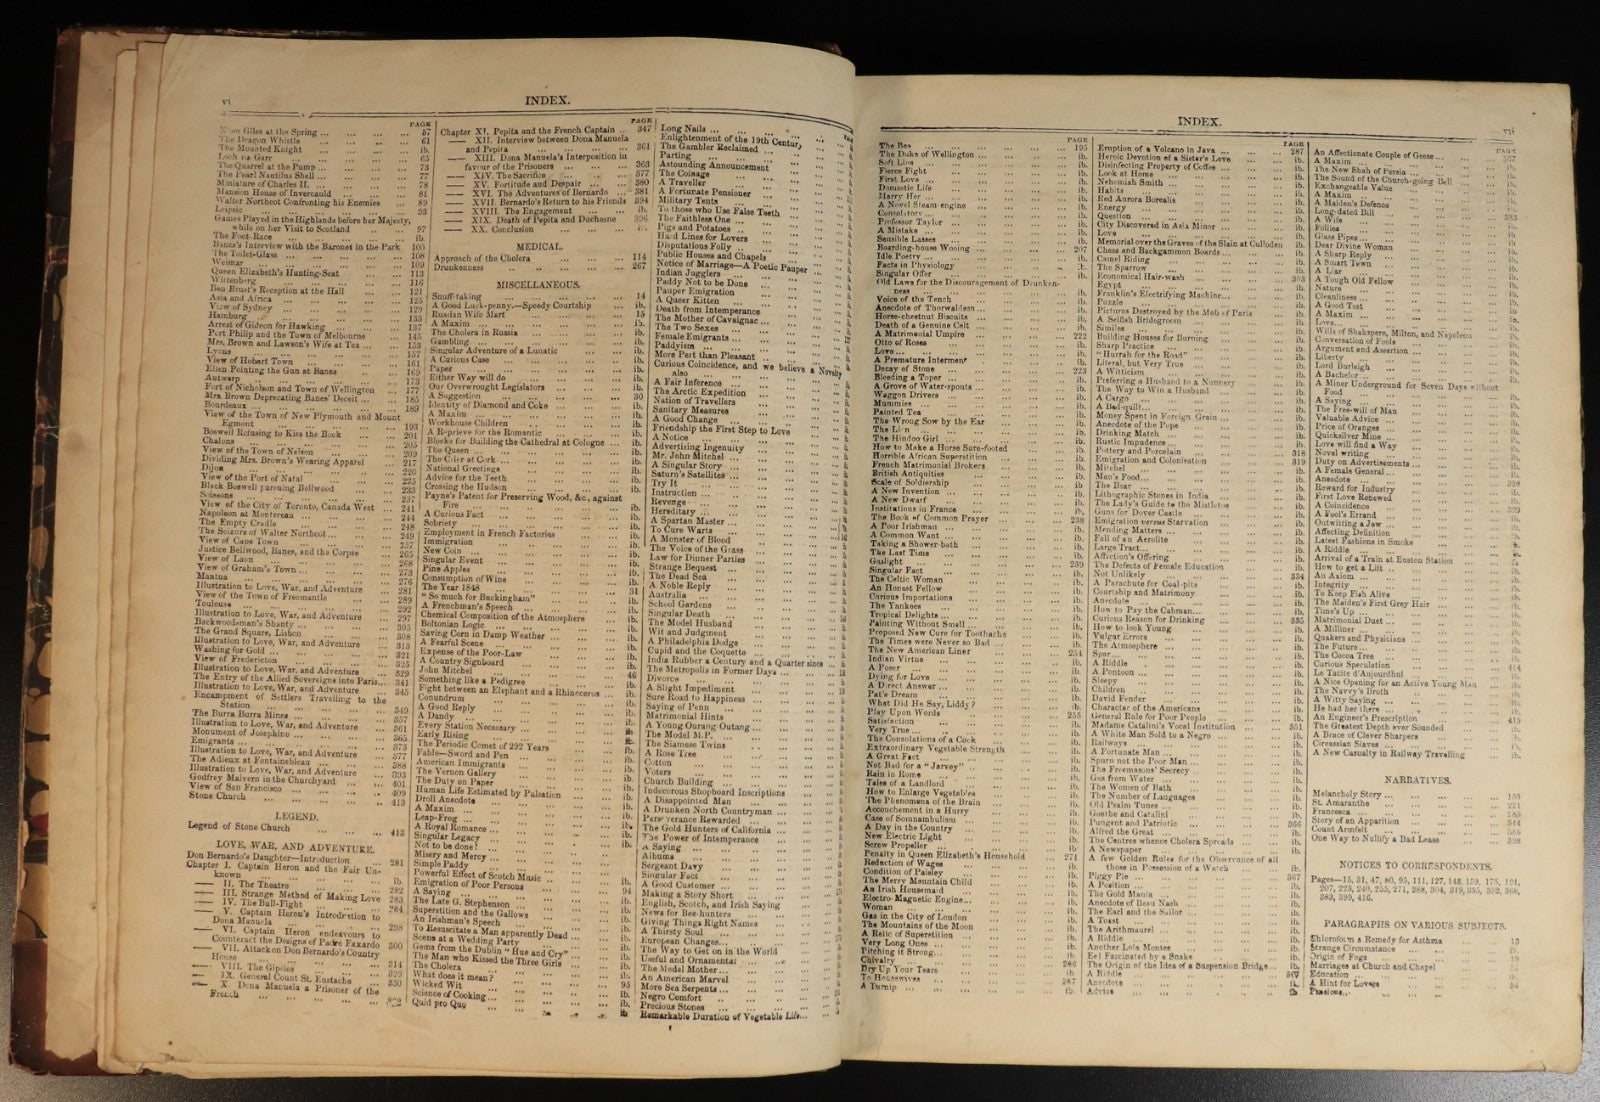 vi
INDEX.
PAGE
Ellen Giles at the Spring ... 57
The Dragon Whistle ... 61
The Mounted Knight ... ib.
Loch na Garr ... 65
The Quarrel at the Pump ... 73
The Pearl Nautilus Shell ... 77
Miniature of Charles II. ... 78
Mansion House of Invercauld ... 81
Walter Northcot Confronting his Enemies ... 89
Leipsic ... 93
Games Played in the Highlands before her Majesty,
while on her Visit to Scotland ... 97
The Foot-Race ... ib.
Banes's Interview with the Baronet in the Park 105
The Toilet-Glass ... 108
Weimar ... 109
Queen Elizabeth's Hunting-Seat ... 113
Wittenberg ... 116
Ben Brust's Reception at the Hall ... 121
Asia and Africa ... 125
View of Sydney ... 129
Hamburg ... 133
Arrest of Gideon for Hawking ... 137
Port Philip and the Town of Melbourne ... 145
Mrs. Brown and Lawson's Wife at Tea ... 153
Lyons ... 157
View of Hobart Town ... 161
Ellen Pointing the Gun at Banes ... 169
Antwerp ... 173
Port of Nicholson and Town of Wellington ... 177
Mrs. Brown Deprecating Banes' Deceit ... 185
Bourdeaux ... 189
View of the Town of New Plymouth and Mount
Egmont ... 193
Boswell Refusing to Kiss the Book ... 201
Chalons ... 205
View of the Town of Nelson ... 209
Dividing Mrs. Brown's Wearing Apparel ... 217
Dijon ... 220
View of the Port of Natal ... 225
Black Boswell pursuing Bellwood ... 233
Soissons ... 237
View of the City of Toronto, Canada West ... 241
Napoleon at Montereau ... 244
The Empty Cradle ... 248
The Seizure of Walter Northcot ... 249
View of Cape Town ... 257
Justice Bellwood, Banes, and the Corpse ... 265
View of Laon ... 268
View of Graham's Town ... 273
Mantua ... 276
Illustration to Love, War, and Adventure ... 281
View of the Town of Freemantle ... 289
Toulouse ... 292
Illustration to Love, War, and Adventure ... 297
Backwoodsman's Shanty ... 305
The Grand Square, Lisbon ... 308
Illustration to Love, War, and Adventure ... 313
Washing for Gold ... 321
View of Fredericton ... 325
Illustration to Love, War, and Adventure ... 329
The Entry of the Allied Sovereigns into Paris ... 341
Illustration to Love, War, and Adventure ... 345
Encampment of Settlers Travelling to the
Station ... 349
The Burra Burra Mines ... 357
Illustration to Love, War, and Adventure ... 361
Monument of Josephine ... 365
Emigrants ... 373
Illustration to Love, War, and Adventure ... 377
The Adieux at Fontainebleau ... 388
Illustration to Love, War, and Adventure ... 393
Godfrey Malvern in the Churchyard ... 401
View of San Francisco ... 409
Stone Church ... 413
LEGEND.
Legend of Stone Church ... 413
LOVE, WAR, AND ADVENTURE.
Don Bernardo's Daughter—Introduction ... 281
Chapter I. Captain Heron and the Fair Un-
known ... ib.
—— II. The Theatre ... 282
—— III. Strange Method of Making Love 283
—— IV. The Bull-Fight ... 284
—— V. Captain Heron's Introduction to
Dona Manuela ... 298
—— VI. Captain Heron endeavours to
Counteract the Designs of Padre Faxardo 300
—— VII. Attack on Don Bernardo's Country
House ... 314
—— VIII. The Gipsies ... 329
—— IX. General Count St. Eustache ... 330
—— X. Dona Manuela a Prisoner of the
French
PAGE
Chapter XI. Pepita and the French Captain .. 347
—— XII. Interview between Dona Manuela
and Pepita ... 361
—— XIII. Dona Manuela's Interposition in
favour of the Prisoners ... 363
—— XIV. The Sacrifice ... 377
—— XV. Fortitude and Despair ... 380
—— XVI. The Adventures of Bernardo ... 381
—— XVII. Bernardo's Return to his Friends 394
—— XVIII. The Engagement ... ib.
—— XIX. Death of Pepita and Duchesne 396
—— XX. Conclusion
MEDICAL.
Approach of the Cholera ... 114
Drunkenness ... 267
MISCELLANEOUS.
Snuff-taking ... 14
A Good Luck-penny.—Speedy Courtship ... ib.
Russian Wife Mart ... 15
A Maxim ... ib.
The Cholera in Russia ... ib.
Gambling ... ib.
Singular Adventure of a Lunatic ... ib.
A Curious Case ... ib.
Paper ... ib.
Either Way will do ... ib.
Our Overwrought Legislators ... ib.
A Suggestion ... 30
Identity of Diamond and Coke ... ib.
A Maxim ... ib.
Workhouse Children ... ib.
A Reprieve for the Romantic ... ib.
Blocks for Building the Cathedral at Cologne ... ib.
The Queen ... ib.
The Crier at Cork ... ib.
National Greetings ... ib.
Advice for the Teeth ... ib.
Crossing the Hudson ... ib.
Payne's Patent for Preserving Wood, &c., against
Fire ... ib.
A Curious Fact ... ib.
Sobriety ... ib.
Employment in French Factories ... ib.
Immigration ... ib.
New Coin ... ib.
Singular Event ... ib.
Pine Apples ... ib.
Consumption of Wine ... ib.
The Year 1848 ... 31
"So much for Buckingham" ... ib.
A Frenchman's Speech ... ib.
Chemical Composition of the Atmosphere ... ib.
Boltonian Logic ... ib.
Saving Corn in Damp Weather ... ib.
A Fearful Scene ... ib.
Expense of the Poor-Law ... ib.
A Country Signboard ... ib.
John Mitchel ... ib.
Something like a Pedigree ... 46
Fight between an Elephant and a Rhinoceros ... ib.
Conundrum ... ib.
A Good Reply ... ib.
A Dandy ... ib.
Every Station Necessary ... ib.
Early Rising ... ib.
The Periodic Comet of 292 Years ... ib.
Fable—Sword and Pen ... ib.
American Immigrants ... ib.
The Vernon Gallery ... ib.
The Duty on Paper ... ib.
Human Life Estimated by Pulsation ... ib.
Droll Anecdote ... ib.
A Maxim ... ib.
Leap-Frog ... ib.
A Royal Romance ... ib.
Singular Legacy ... ib.
Not to be done! ... ib.
Misery and Mercy
Simple Paddy
Powerful Effect of Scotch Music ... ib.
Emigration of Poor Persons ... ib.
A Saying ... 94
The Late G. Stephenson ... ib.
Superstition and the Gallows ... ib.
An Irishman's Speech ... ib.
To Resuscitate a Man apparently Dead ... ib.
Scene at a Wedding Party ... ib.
Gems from the Dublin "Hue and Cry" ... ib.
The Man who Kissed the Three Girls ... ib.
The Cholera ... ib.
What does it mean? ... ib.
Wicked Wit ... 95
Science of Cooking ... ib.
Quid pro Quo ... ib.
Long Nails
Enlightenment of the 19th Century
The Gambler Reclaimed
Parting
Astounding Announcement
The Coinage
A Traveller
A Fortunate Pensioner
Military Tents
To those who Use False Teeth
The Faithless One
Pigs and Potatoes
Hard Lines for Lovers
Disputatious Folly
Public Houses and Chapels
Notice of Marriage—A Poetic Pauper
Indian Jugglers
Paddy Not to be Done
Pauper Emigration
A Queer Kitten
Death from Intemperance
The Mother of Cavaignac
The Two Sexes
Female Emigrants
Paddyism
More Pert than Pleasant
Curious Coincidence, and we believe a Novelty
also
A Fair Inference
The Arctic Expedition
Nation of Travellers
Sanitary Measures
A Good Change
Friendship the First Step to Love
A Notice
Advertising Ingenuity
Mr. John Mitchel
A Singular Story
Saturn's Satellites
Try It
Instruction
Revenge
Hereditary
A Spartan Master
To Cure Warts
A Monster of Blood
The Voice of the Grass
Law for Dinner Parties
Strange Bequest
The Dead Sea
A Noble Reply
Australia
School Gardens
Singular Death
The Model Husband
Wit and Judgment
A Philadelphia Dodge
Cupid and the Coquette
India Rubber a Century and a Quarter since
The Metropolis in Former Days
Divorce
A Slight Impediment
Sure Road to Happiness
Saying of Penn
Matrimonial Hints
A Young Ourang-Outang
The Model M.P.
The Siamese Twins
A Rose Tree
Cotton
Voters
Church Building
Indecorous Shopboard Inscriptions
A Disappointed Man
A Drunken North Countryman
Perseverance Rewarded
The Gold Hunters of California
The Power of Intemperance
A Saying
Albums
Sergeant Davy
Singular Fact
A Good Customer
Making a Story Short
English, Scotch, and Irish Saying
News for Bee-hunters
Giving Things Right Names
A Thirsty Soul
European Changes
The Way to Get on in the World
Useful and Ornamental
The Model Mother
An American Marvel
More Sea Serpents
Negro Comfort
Precious Stones
Remarkable Duration of Vegetable Life
INDEX.
vii
PAGE
The Bee ... 195
The Duke of Wellington ... ib.
Soft Lips ... ib.
Fierce Fight ... ib.
First Love ... ib.
Domestic Life ... ib.
Marry Her ... ib.
A Novel Steam-engine ... ib.
Consolatory ... ib.
Professor Taylor ... ib.
A Mistake ... ib.
Sensible Lasses ... ib.
Boarding-house Wooing ... 207
Idle Poetry ... ib.
Facts in Physiology ... ib.
Singular Offer ... ib.
Old Laws for the Discouragement of Drunken-
ness ... ib.
Voice of the Tench ... ib.
Anecdote of Thorwaldsen ... ib.
Horse-chestnut Biscuits ... ib.
Death of a Genuine Celt ... ib.
A Matrimonial Umpire ... 222
Otto of Roses ... ib.
Love ... ib.
A Premature Interment ... ib.
Decay of Stone ... 223
Bleeding a Toper ... ib.
A Grove of Water-spouts ... ib.
Waggon Drivers ... ib.
Mummies ... ib.
Painted Tea ... ib.
The Wrong Sow by the Ear ... ib.
The Lion ... ib.
The Hindoo Girl ... ib.
How to Make a Horse Sure-footed ... ib.
Horrible African Superstition ... ib.
French Matrimonial Brokers ... ib.
British Antiquities ... ib.
Scale of Soldiership ... ib.
A New Invention ... ib.
A New Dwarf ... ib.
Institutions in France ... ib.
The Book of Common Prayer ... 238
A Poor Irishman ... ib.
A Common Want ... ib.
Taking a Shower-bath ... ib.
The Last Time ... ib.
Gaslight ... 239
Singular Fact ... ib.
The Celtic Woman ... ib.
An Honest Fellow ... ib.
Curious Importations ... ib.
The Yankees ... ib.
Tropical Delights ... ib.
Painting Without Smell ... ib.
Proposed New Cure for Toothache ... ib.
The Times were Never so Bad ... ib.
The New American Liner ... 254
Indian Virtue ... ib.
A Poser ... ib.
Dying for Love ... ib.
A Direct Answer ... ib.
Pat's Dream ... ib.
What Did He Say, Liddy? ... ib.
Play Upon Words ... 255
Satisfaction ... ib.
Very True ... ib.
The Consolations of a Cook ... ib.
Extraordinary Vegetable Strength ... ib.
A Great Fact ... ib.
Not Bad for a "Jarvey" ... ib.
Rain in Rome ... ib.
Tales of a Landlord ... ib.
How to Enlarge Vegetables ... ib.
The Phenomena of the Brain ... ib.
Accouchement in a Hurry ... ib.
Case of Somnambulism ... ib.
A Day in the Country ... ib.
New Electric Light ... ib.
Screw Propeller ... ib.
Penalty in Queen Elizabeth's Household ... 271
Reduction of Wages ... ib.
Condition of Paisley ... ib.
The Merry Mountain Child ... ib.
An Irish Housemaid ... ib.
Electro-Magnetic Engine ... ib.
Woman ... ib.
Gas in the City of London ... ib.
The Mountains of the Moon ... ib.
A Relic of Superstition ... ib.
Very Long Ones ... ib.
Pitching it Strong ... ib.
Chivalry ... 286
Dry Up Your Tears ... ib.
To Housewives ... 287
A Turnip ... ib.
PAGE
Eruption of a Volcano in Java ... 287
Heroic Devotion of a Sister's Love ... ib.
Disinfecting Property of Coffee ... ib.
Look at Home ... ib.
Nehemiah Smith ... ib.
Habits ... ib.
Red Aurora Borealis ... ib.
Energy ... ib.
Question ... ib.
City Discovered in Asia Minor ... ib.
Love ... ib.
Memorial over the Graves of the Slain at Culloden ib.
Chess and Backgammon Boards ... ib.
Camel Riding ... ib.
The Sparrow ... ib.
Economical Hair-wash ... 303
Egypt ... ib.
Franklin's Electrifying Machine ... ib.
Puzzle ... ib.
Pictures Destroyed by the Mob of Paris ... ib.
A Selfish Bridegroom ... ib.
Similes ... ib.
Building Houses for Burning ... ib.
Sharp Practice ... ib.
"Hurrah for the Road" ... ib.
Literal, but Very True ... ib.
A Witticism ... ib.
Preferring a Husband to a Nunnery ... ib.
The Way to Win a Husband ... ib.
A Cargo ... ib.
A Bed-quilt ... ib.
Money Spent in Foreign Grain ... ib.
Anecdote of the Pope ... ib.
Drinking Match ... ib.
Rustic Impudence ... ib.
Pottery and Porcelain ... 318
Emigration and Colonisation ... 319
Mitchel ... ib.
Man's Food ... ib.
The Bear ... ib.
Lithographic Stones in India ... ib.
The Lady's Guide to the Mistletoe ... ib.
Guns for Dover Castle ... ib.
Emigration versus Starvation ... ib.
Mending Matters ... ib.
Fall of an Aerolite ... ib.
Large Tract ... ib.
Affection's Offering ... ib.
The Defects of Female Education ... ib.
Not Unlikely ... 334
A Parachute for Coal-pits ... ib.
Courtship and Matrimony ... ib.
Anecdote ... ib.
How to Pay the Cabman ... ib.
Curious Reason for Drinking ... 335
How to look Young ... ib.
Vulgar Errors ... ib.
The Atmosphere ... ib.
Spar ... ib.
A Riddle ... ib.
A Pontoon ... ib.
Sleepy ... ib.
Children ... ib.
David Fender ... ib.
Character of the Americans ... ib.
General Rule for Poor People ... ib.
Madame Catalini's Vocal Institution ... 351
A White Man Sold to a Negro ... ib.
Railways ... ib.
A Fortunate Man ... ib.
Spurn not the Poor Man ... ib.
The Freemasons' Secrecy ... ib.
Gas from Water ... ib.
The Women of Bath ... ib.
The Number of Languages ... ib.
Old Psalm Tunes ... ib.
Goethe and Catalini ... ib.
Pungent and Patriotic ... 366
Alfred the Great ... ib.
The Centres whence Cholera Spreads ... ib.
A Newspaper ... ib.
A few Golden Rules for the Observance of all
those in Possession of a Watch ... ib.
Piggy Pie ... 367
A Position ... ib.
The Gold Mania ... ib.
Anecdote of Beau Nash ... ib.
The Earl and the Sailor ... ib.
A Toast ... ib.
The Arithmaurel ... ib.
A Riddle ... ib.
Another Lola Montes ... ib.
Eel Fascinated by a Snake ... ib.
The Origin of the Idea of a Suspension Bridge ... ib.
A Riddle ... 367
Anecdote ... ib.
Advice ... ib.
PAGE
An Affectionate Couple of Geese ... 367
A Maxim ... ib.
The New Shah of Persia ... ib.
The Sound of the Church-going Bell ... ib.
Exchangeable Value ... ib.
A Maxim ... ib.
A Maiden's Defence ... ib.
Long-dated Bill ... ib.
A Wife ... 383
Follies ... ib.
Glass Pipes ... ib.
Dear Divine Woman ... ib.
A Sharp Reply ... ib.
A Smart Town ... ib.
A Liar ... ib.
A Tough Old Fellow ... ib.
Nature ... ib.
Cleanliness ... ib.
A Good Test ... ib.
A Maxim ... ib.
Love ... ib.
Wills of Shakspere, Milton, and Napoleon ... ib.
Conversation of Fools ... ib.
Argument and Assertion ... ib.
Liberty ... ib.
Lord Burleigh ... ib.
A Bachelor ... ib.
A Miner Underground for Seven Days without
Food ... ib.
A Saying ... ib.
The Free-will of Man ... ib.
Valuable Advice ... ib.
Price of Oranges ... ib.
Quicksilver Mine ... ib.
Love will find a Way ... ib.
Novel writing ... ib.
Duty on Advertisements ... ib.
A Female General ... ib.
Anecdote ... 398
Reward for Industry ... ib.
First Love Renewed ... ib.
A Coincidence ... ib.
A Fool's Errand ... 399
Outwitting a Jew ... ib.
Affecting Definition ... ib.
Latest Fashions in Smoke
A Riddle ... ib.
Arrival of a Train at Euston Station
How to get a Lift ... ib.
An Axiom ... ib.
Integrity ... ib.
To Keep Fish Alive ... ib.
The Maiden's First Grey Hair ... ib.
Time's Up ... ib.
Matrimonial Duet ... ib.
A Milliner ... ib.
Quakers and Physicians ... ib.
The Future ... ib.
The Cocoa Tree ... ib.
Curious Speculation ... 414
Le Tacite d'Aujourdhui ... ib.
A Nice Opening for an Active Young Man ... ib.
The Navvy's Broth ... ib.
A Witty Saying ... ib.
He had her there ... ib.
An Engineer's Prescription ... 415
The Greatest Depth ever Sounded ... ib.
A Brace of Clever Sharpers ... ib.
Circassian Slaves ... ib.
A New Casualty in Railway Travelling ... ib.
NARRATIVES.
Melancholy Story ... 139
St. Amaranthe ... 221
Francesca ... 285
Story of an Apparition ... 344
Count Armfelt ... 356
One Way to Nullify a Bad Lease ... 398
NOTICES TO CORRESPONDENTS.
Pages—15, 31, 47, 80, 95, 111, 127, 143, 159, 175, 191,
207, 223, 239, 255, 271, 288, 304, 319, 335, 352, 368,
383, 399, 416.
PARAGRAPHS ON VARIOUS SUBJECTS.
Chloroform a Remedy for Asthma ... 13
Strange Circumstance
Origin of Fogs
Marriages at Church and Chapel
Education
A Hint for Lovers
Passions